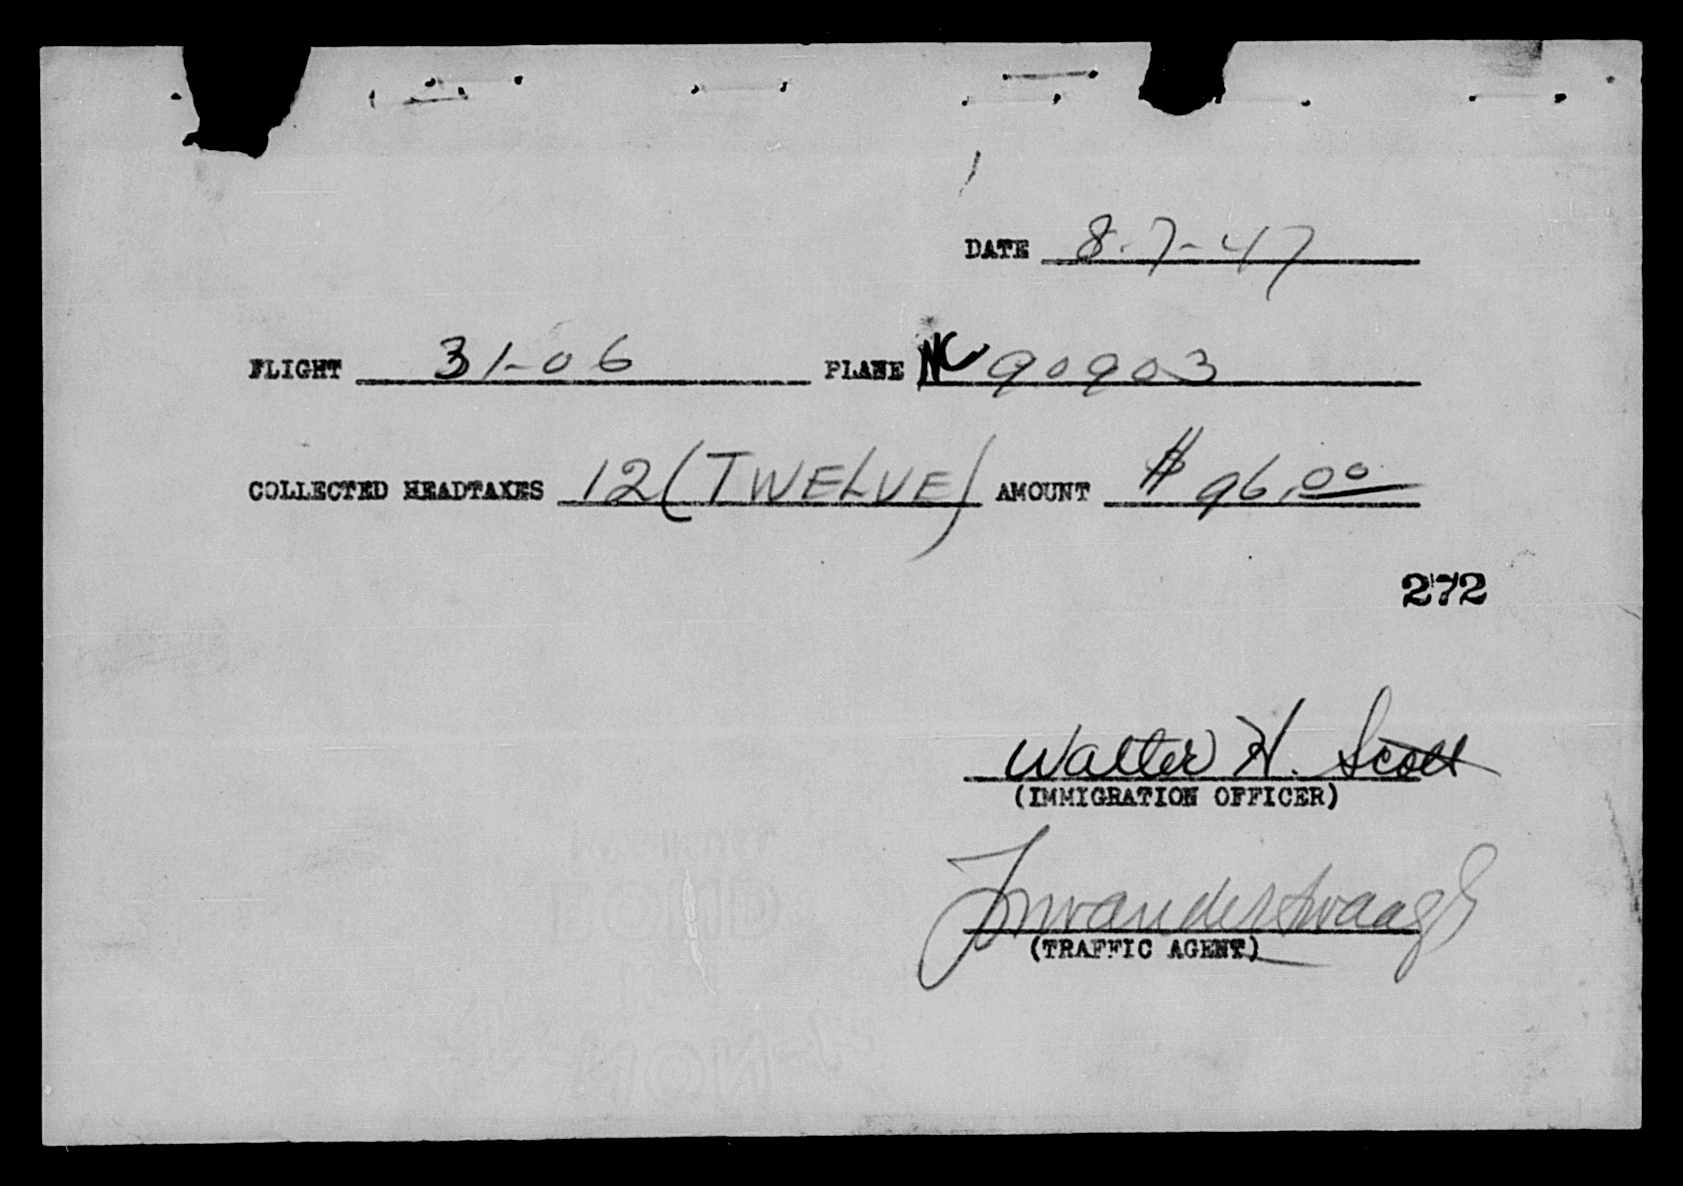 DATE 8-7-47
FLIGHT 31-06 PLANE NC 90903
COLLECTED HEADTAXES 12 (TWELVE) AMOUNT $ 96.00
272
Walter H. Scott
(IMMIGRATION OFFICER)
(TRAFFIC AGENT)